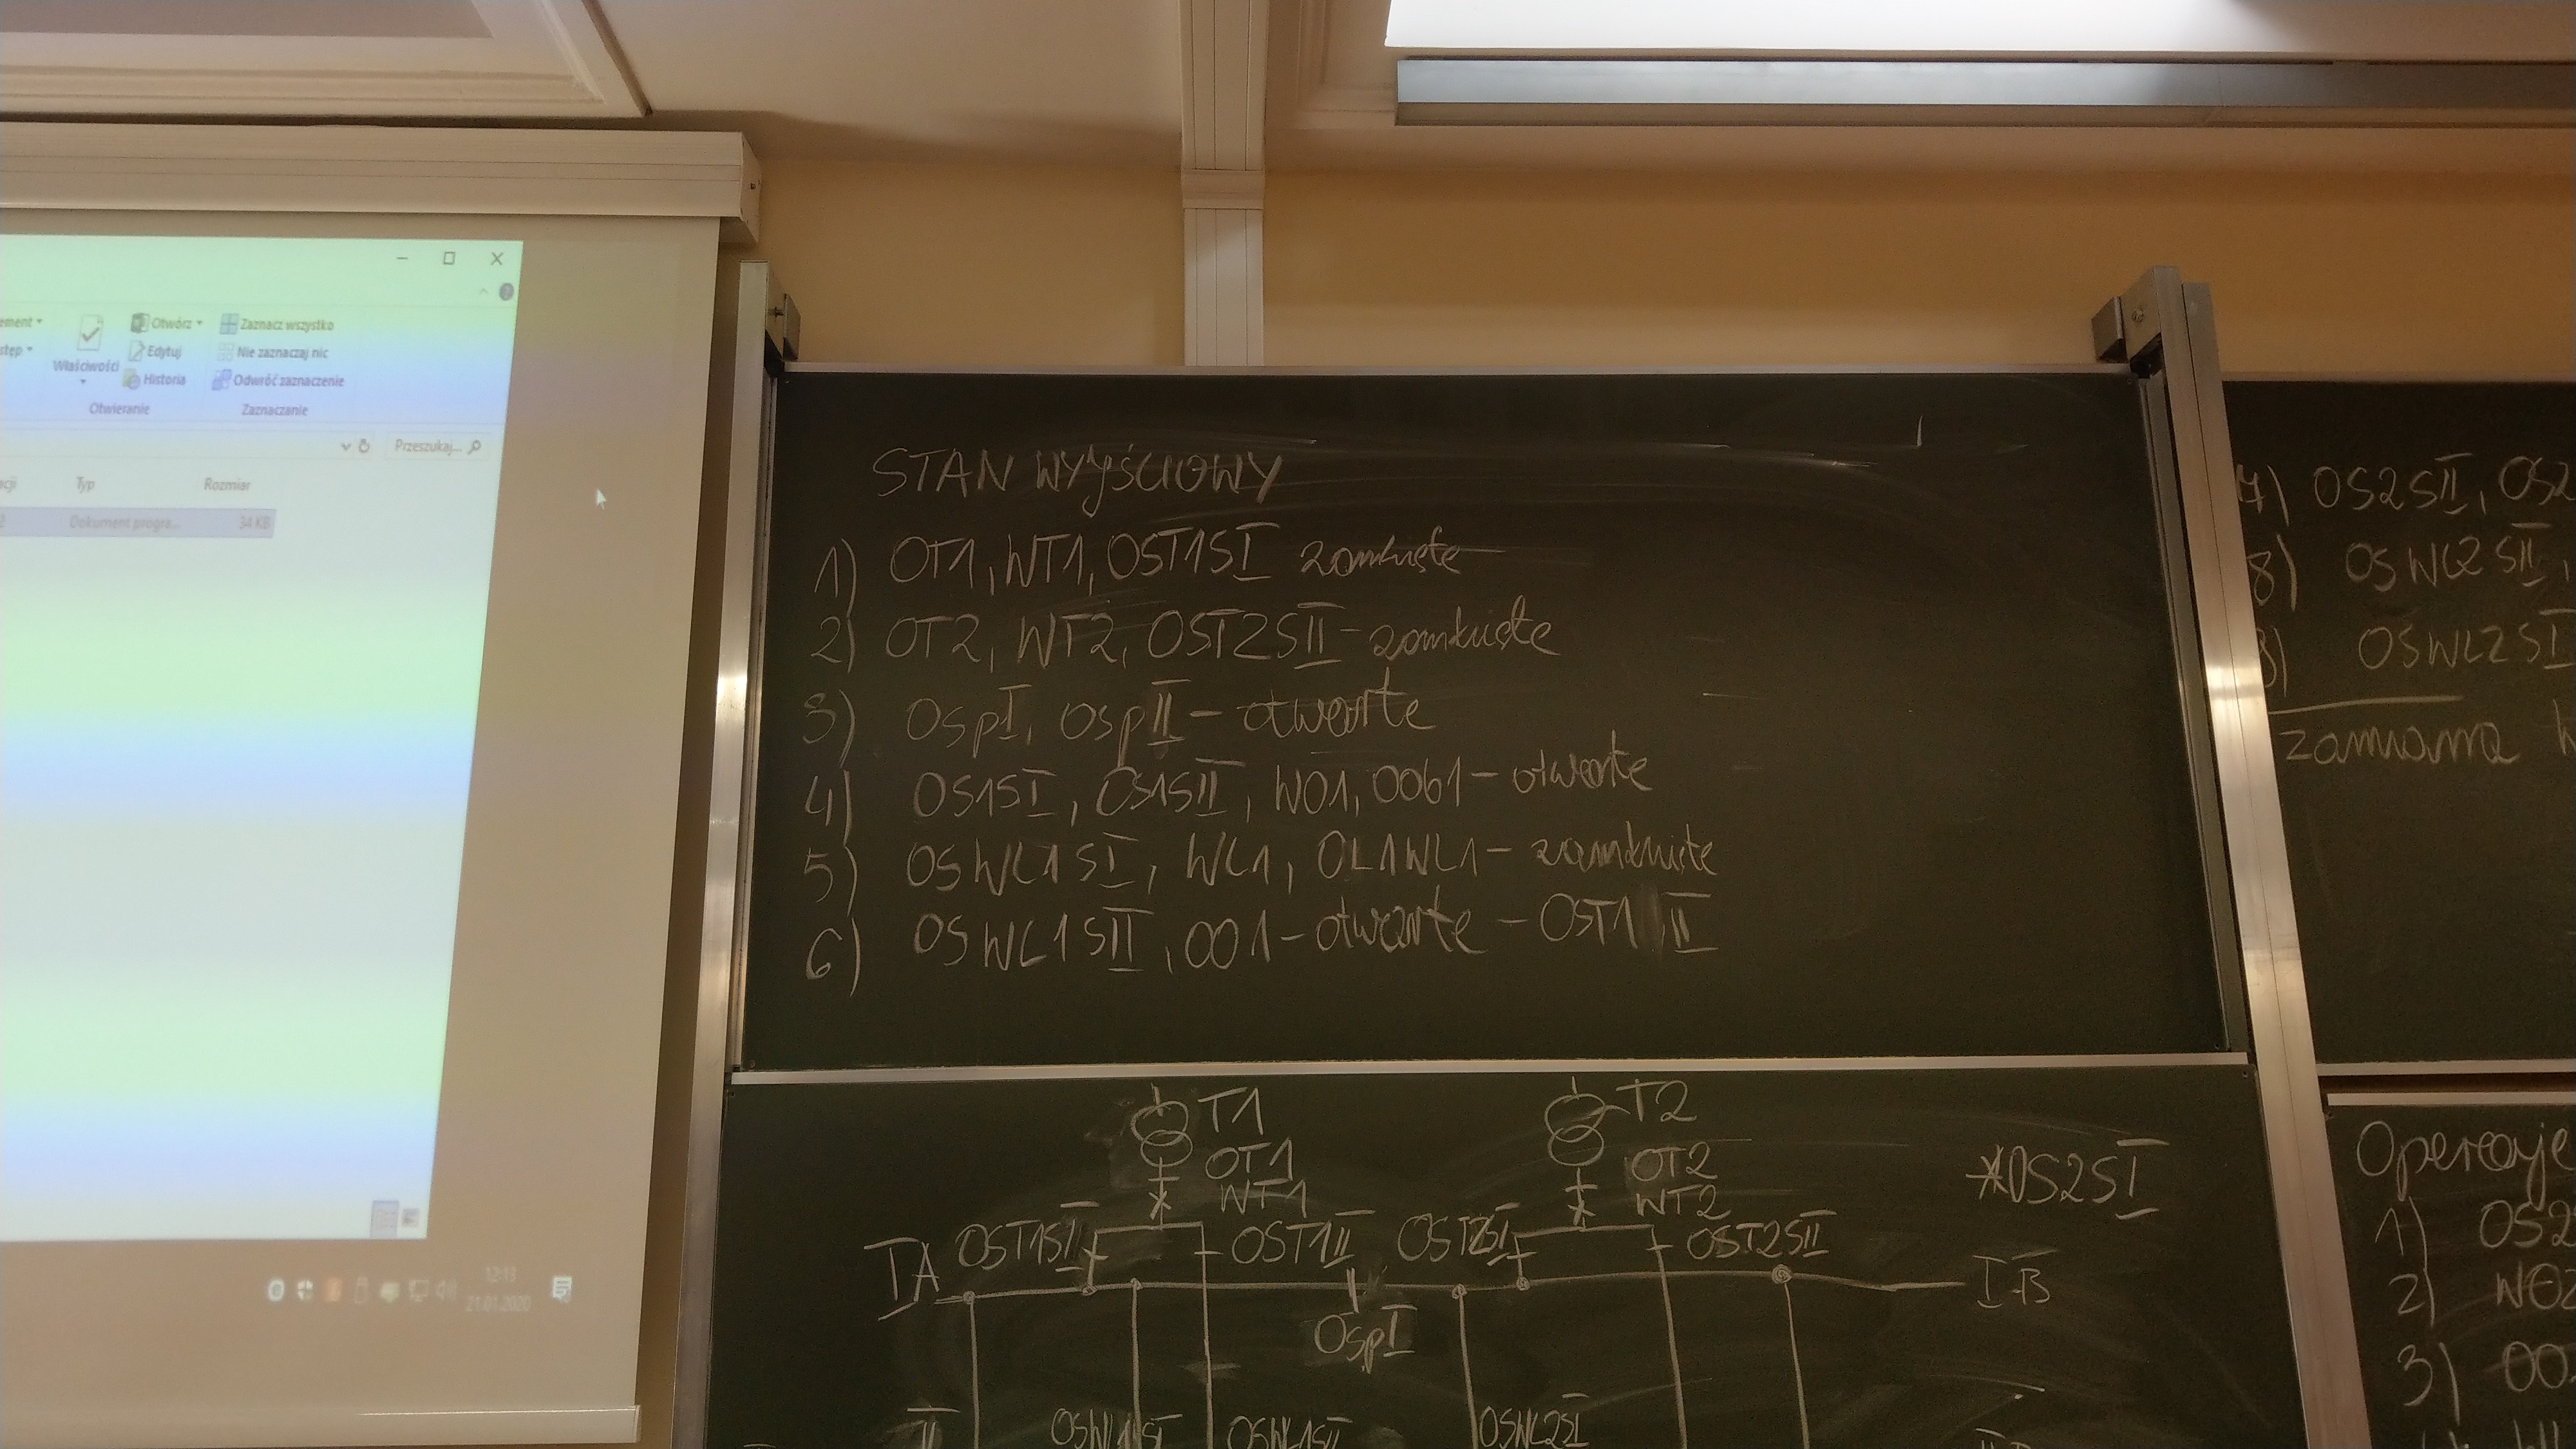 Otwórz
Zaznacz wszystko
Edytuj
Nie zaznaczaj nic
Właściwości
Historia
Odwróć zaznaczenie
Otwieranie
Zaznaczanie
Przeszukaj...
Typ
Rozmiar
Dokument progra...
34 KB
12:13
21.01.2020
STAN WYJŚCIOWY
1) OT1, WT1, OST1SI zamknięte
2) OT2, WT2, OST2SII - zamknięte
3) OSpI, OSpII - otwarte
4) OS1SI, OS1SII, WO1, OOb1 - otwarte
5) OSWL1SI, WL1, OL1WL1 - zamknięte
6) OSWL1SII, OO1 - otwarte - OST1 II
T1
OT1
WT1
T2
OT2
WT2
*OS2SI
IA
OST1SI
OST1II
OST2SI
OST2SII
IB
OSpI
II
OSWL1SI
OSWL1SII
OSWL2SI
7) OS2SII, OS2
8) OSWL2SII,
OSWL2SI
zamiana
Operacje
1) OS2
2) WO2
3) OO